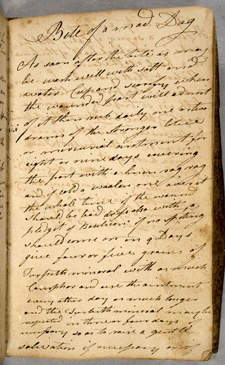 Bite of a mad Dog
As soon after the bite as may
be wash well with salt and
water Cup and scarify where
the wounded part will admit
of it then rub daily one or two
drams of the stronger blue
or mercurial ointment for
eight or nine days covering
the part with a linnen rag
and a waxen one over it
the whole time if the wound
should be bad dress also with a
pledget of Basilicon if no spitting
should come on in 4 Days
give four or five grains of
Turpeth mineral with as much
Camphor and use the ointment
every other day or much longer
and the Turbith mineral may be
repeted in three or four days if
necessary so as to raise a gentle
salivation if necessary